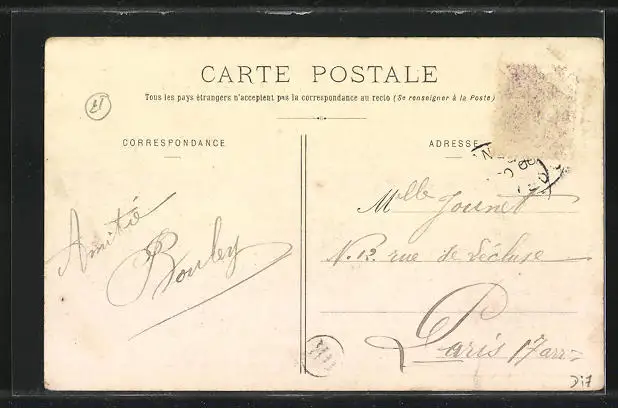 CARTE POSTALE
Tous les pays étrangers n'acceptent pas la correspondance au recto (Se renseigner à la Poste)
CORRESPONDANCE
ADRESSE
Amitié
Bouley
Mlle Journet
N. 12. rue de Lécluse
Paris 17 arr